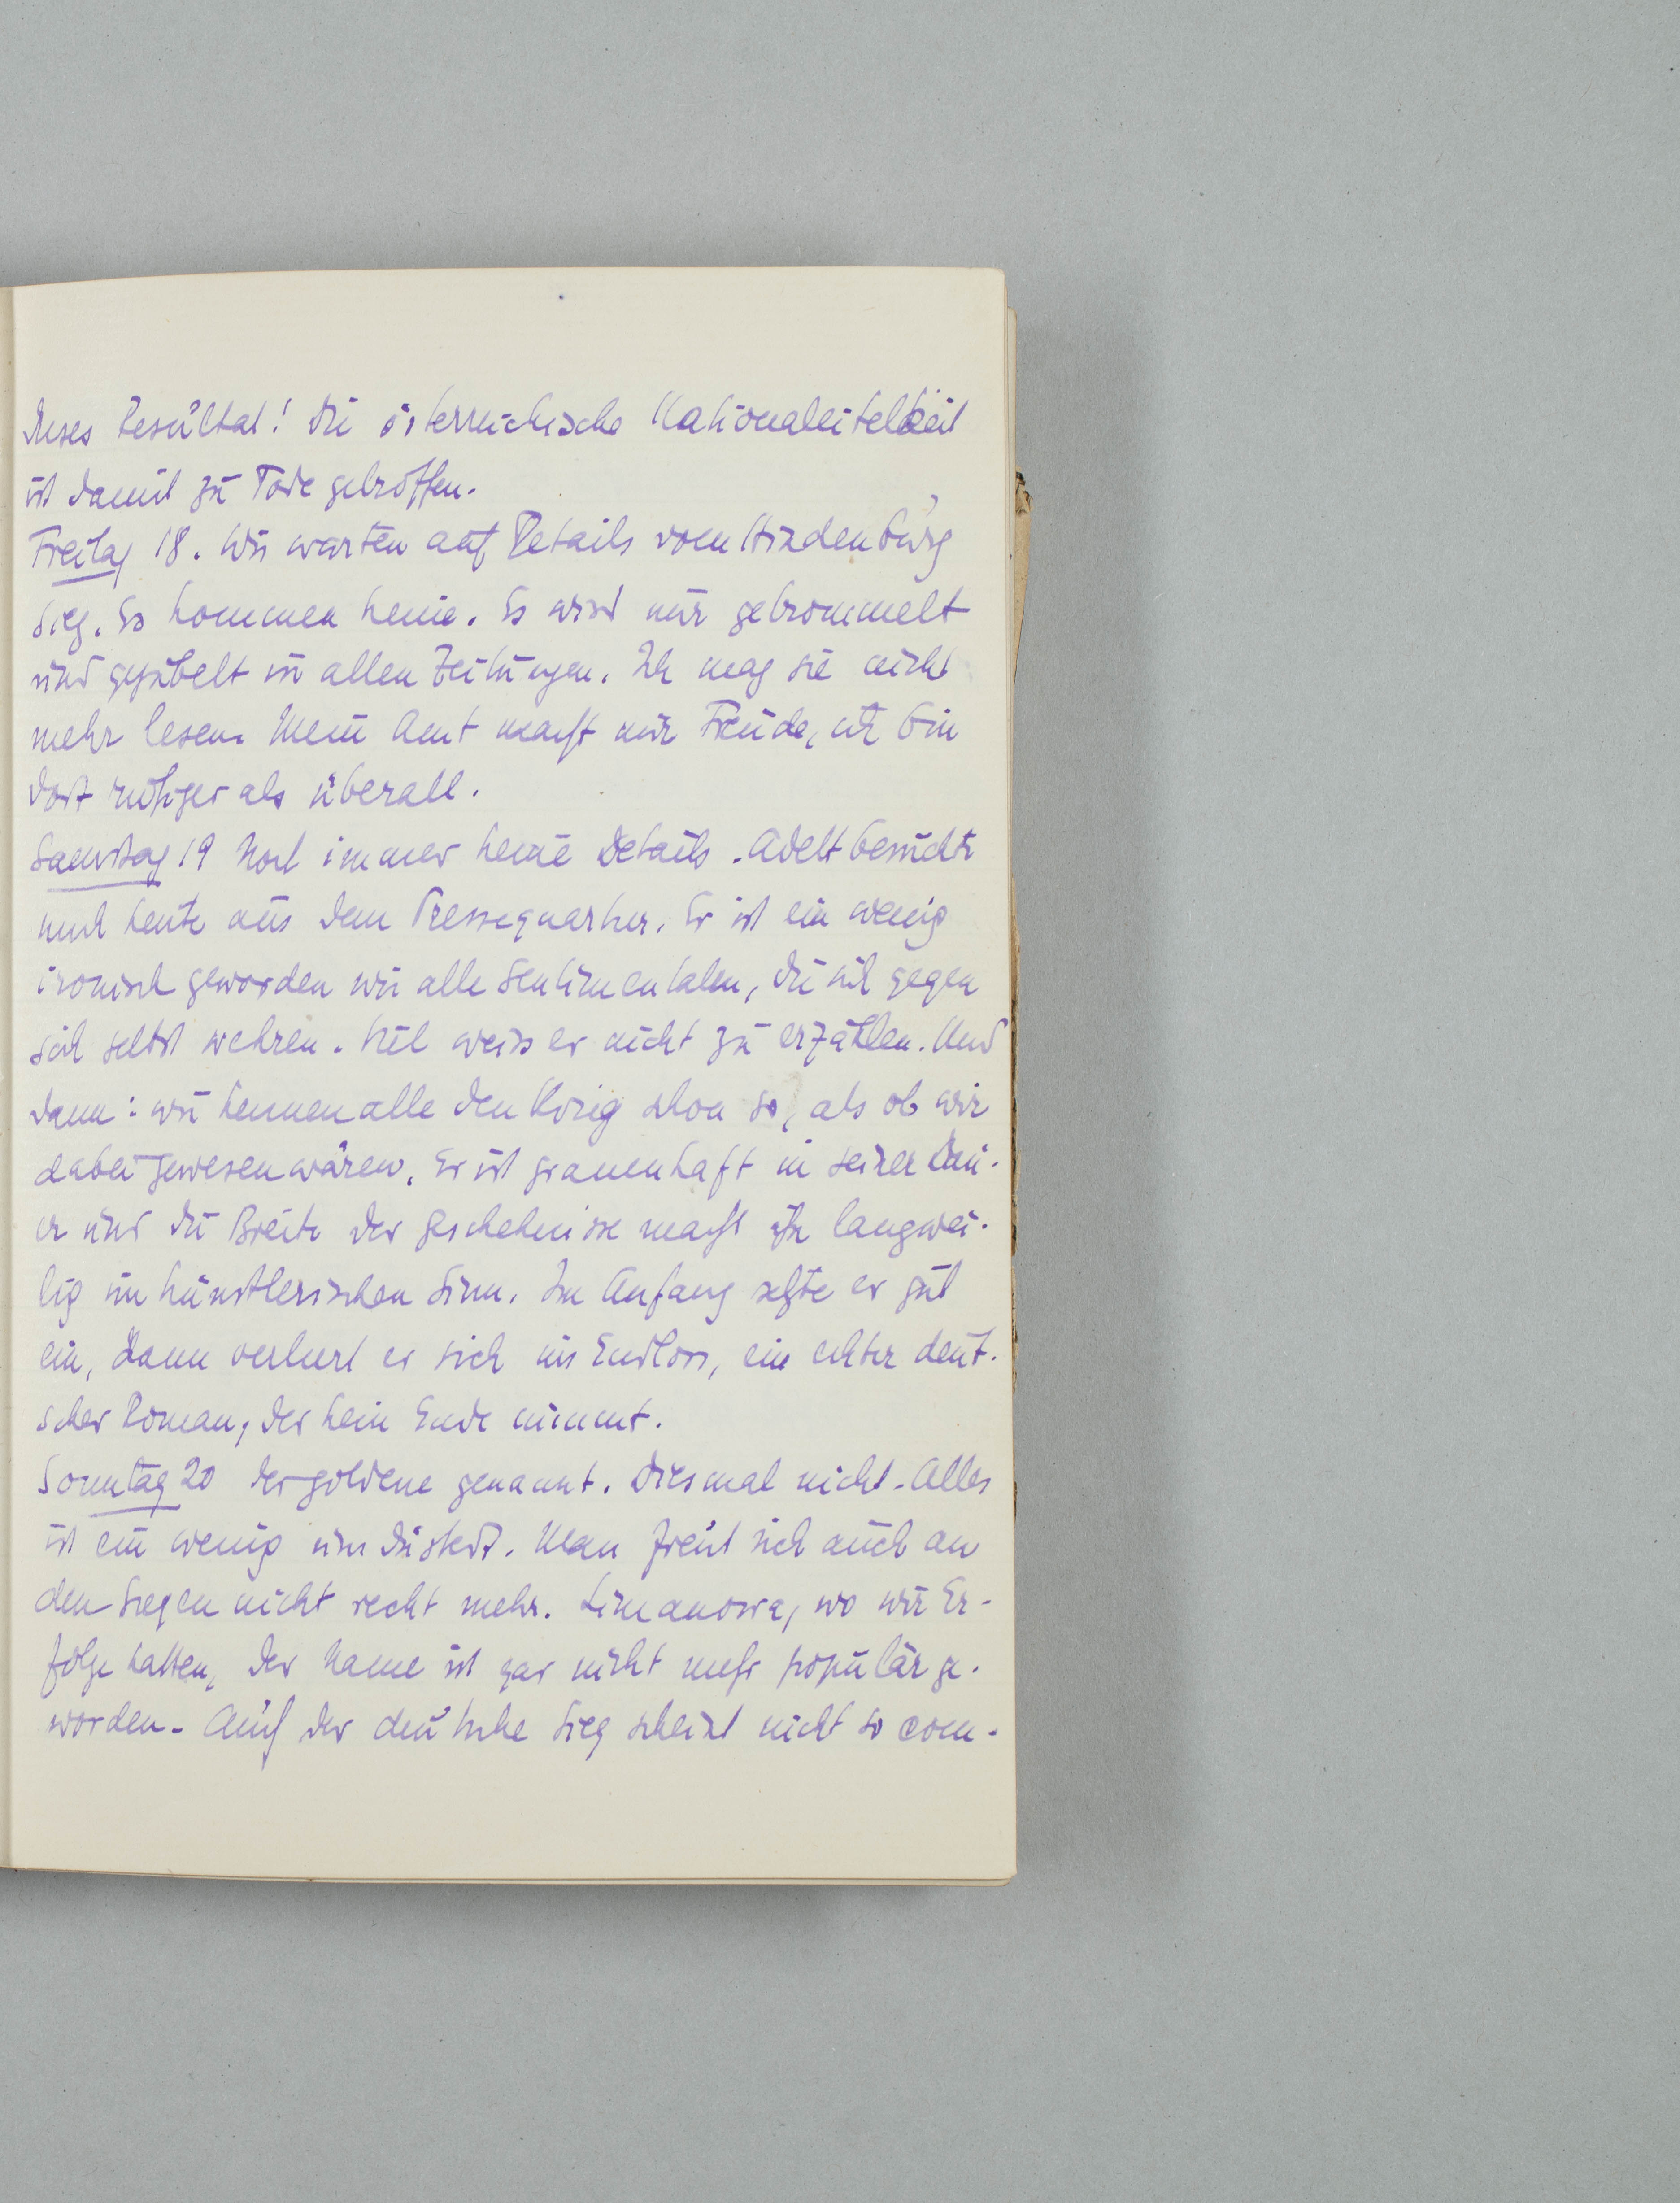 dieses Resultat! Die österreichische Nationaleitelkeit
ist damit zu Tode getroffen.
Freitag 18. Wir warten auf Details vom Hindenburg
Sieg. Es kommen keine. Es wird nur getrommelt
und gejubelt in allen Zeitungen. Ich mag sie nicht
mehr lesen. Mein Amt macht mir Freude, ich bin
dort ruhiger als überall.
Samstag 19 Noch immer keine Details. Adelt besucht
mich heute aus dem Pressequartier. Er ist ein wenig
ironisch geworden wie alle Sentimentalen, die sich gegen
sich selbst wehren. Viel weiss er nicht zu erzählen. Und
dann: wir kennen alle den Krieg schon so, als ob wir
dabei gewesen wären. Er ist grauenhaft in seiner Dau-
er und die Breite der Geschehnisse macht ihn langwei-
lig im künstlerischen Sinn. Im Anfang setzte er gut
ein, dann verliert er sich ins Endlose, ein echter deut-
scher Roman, der kein Ende nimmt.
Sonntag 20 der goldene genannt. Diesmal nicht. Alles
ist ein wenig umdüstert. Man freut sich auch an
den Siegen nicht recht mehr. Limanowa, wo wir Er-
folge hatten, der Name ist gar nicht mehr populär ge-
worden. Auch der deutsche Sieg scheint nicht so com-